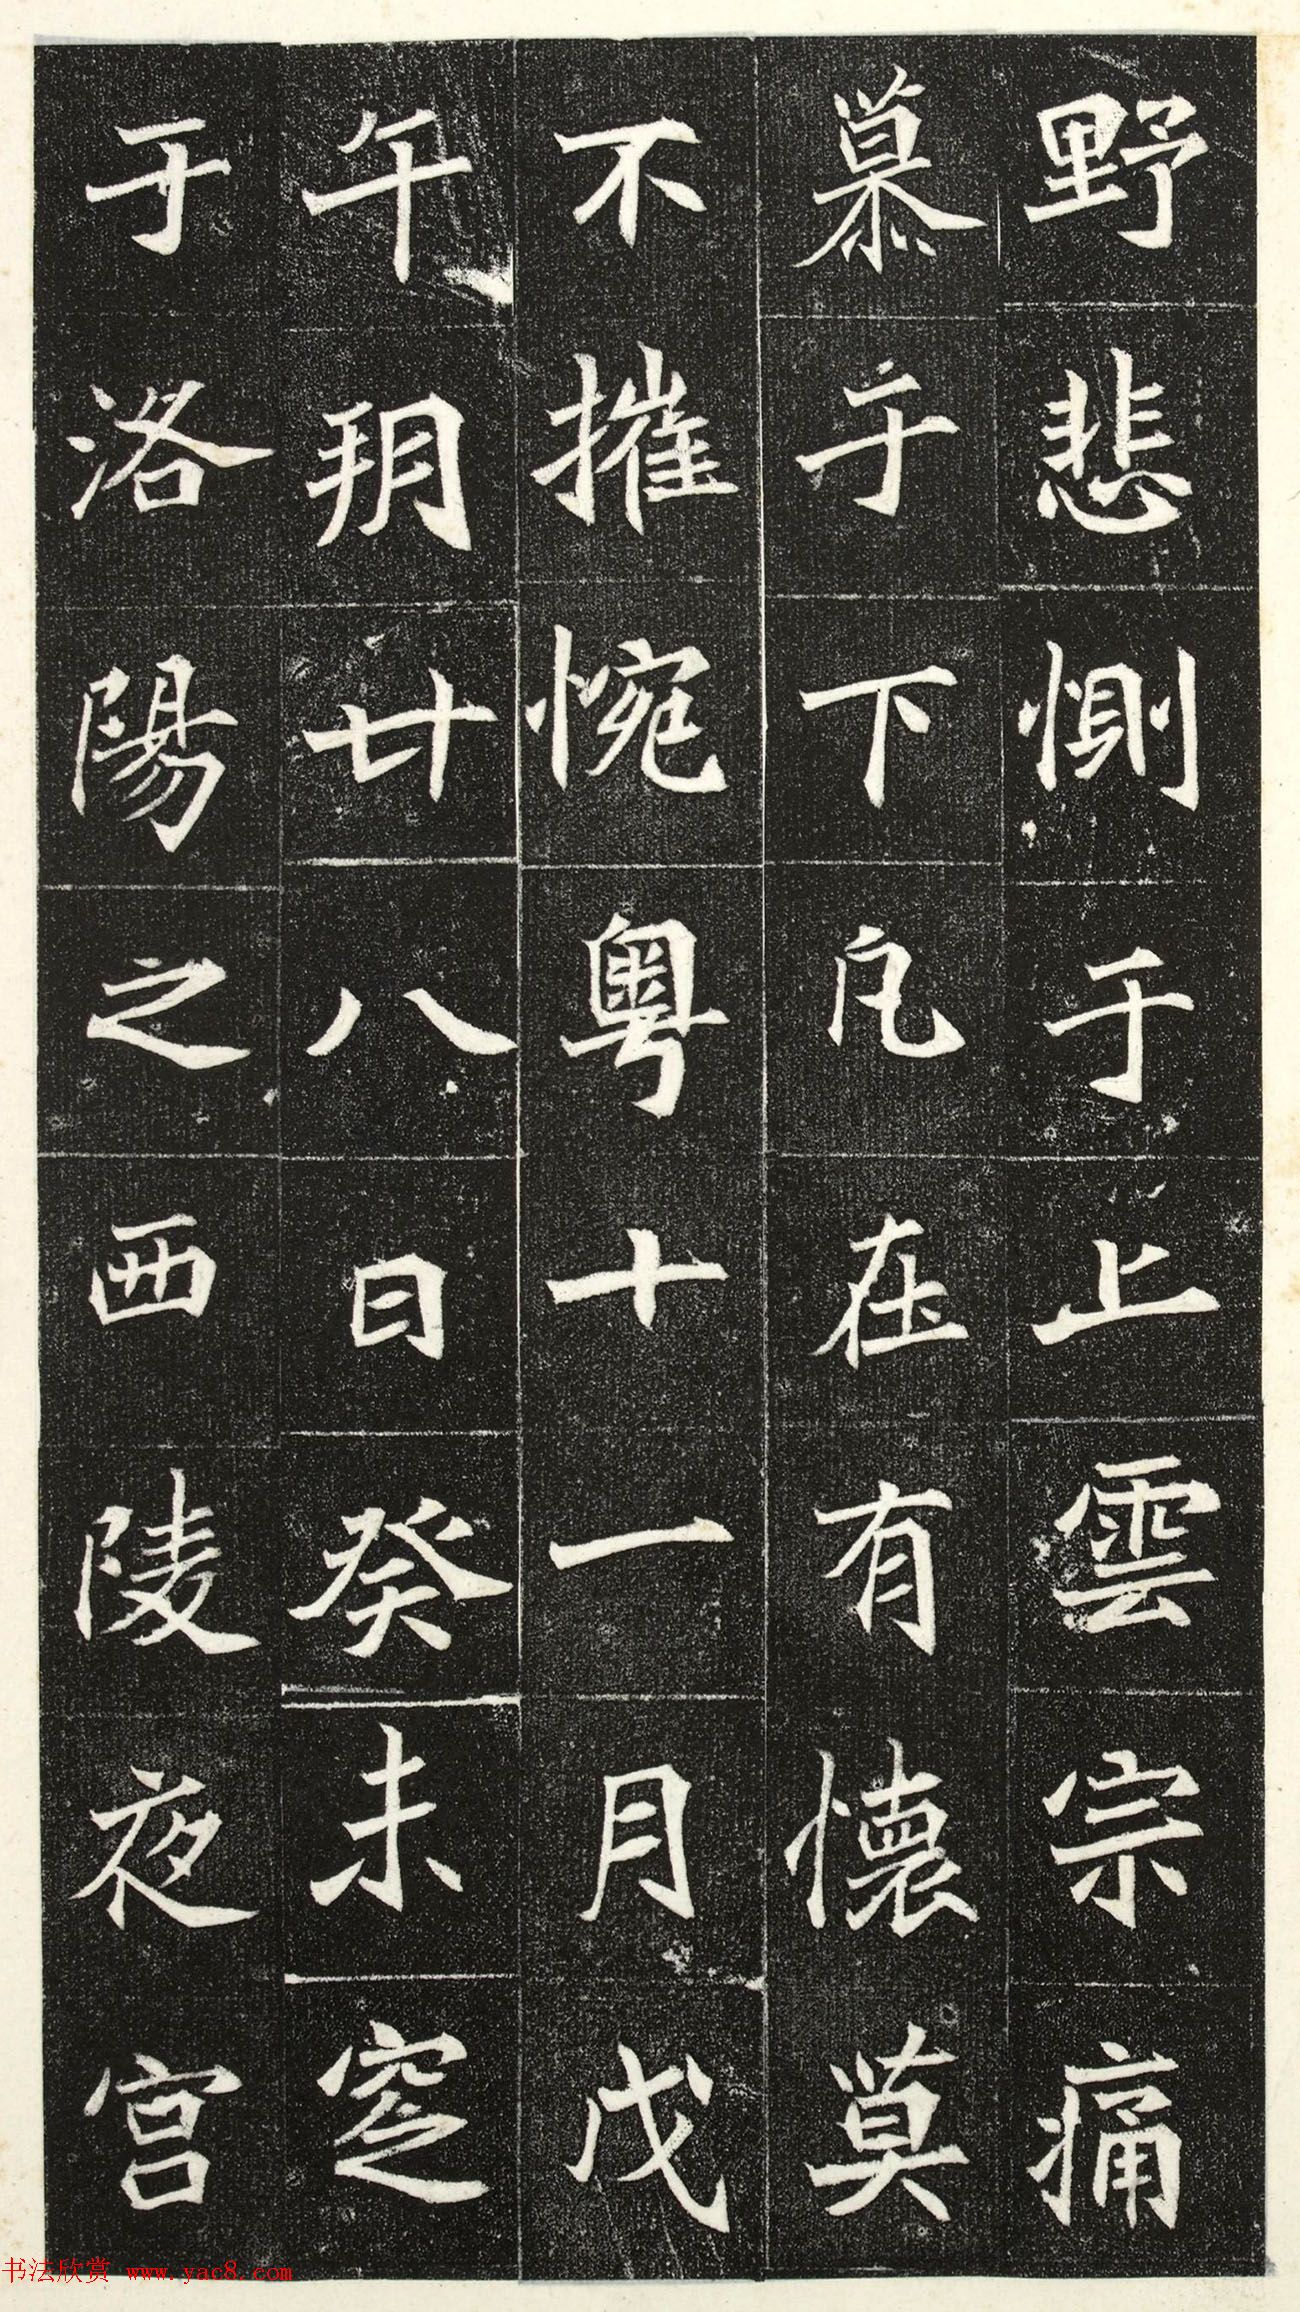 野悲惻于上雲宗痛
慕于下凡在有懷莫
不摧惋粤十一月戊
午朔廿八日癸未窆
于洛陽之西陵夜宮
书法欣赏 www.yac8.com